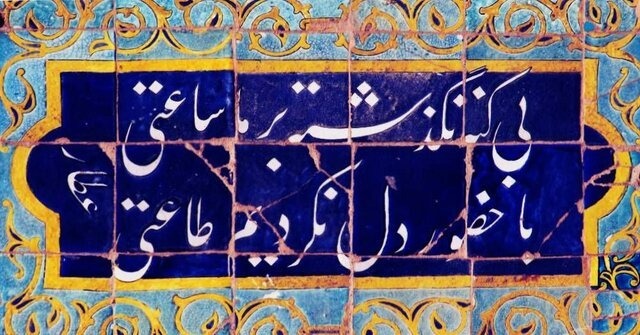 بی گنه نگذشته بر ما ساعتی
با حضور دل نکردیم طاعتی
عطار